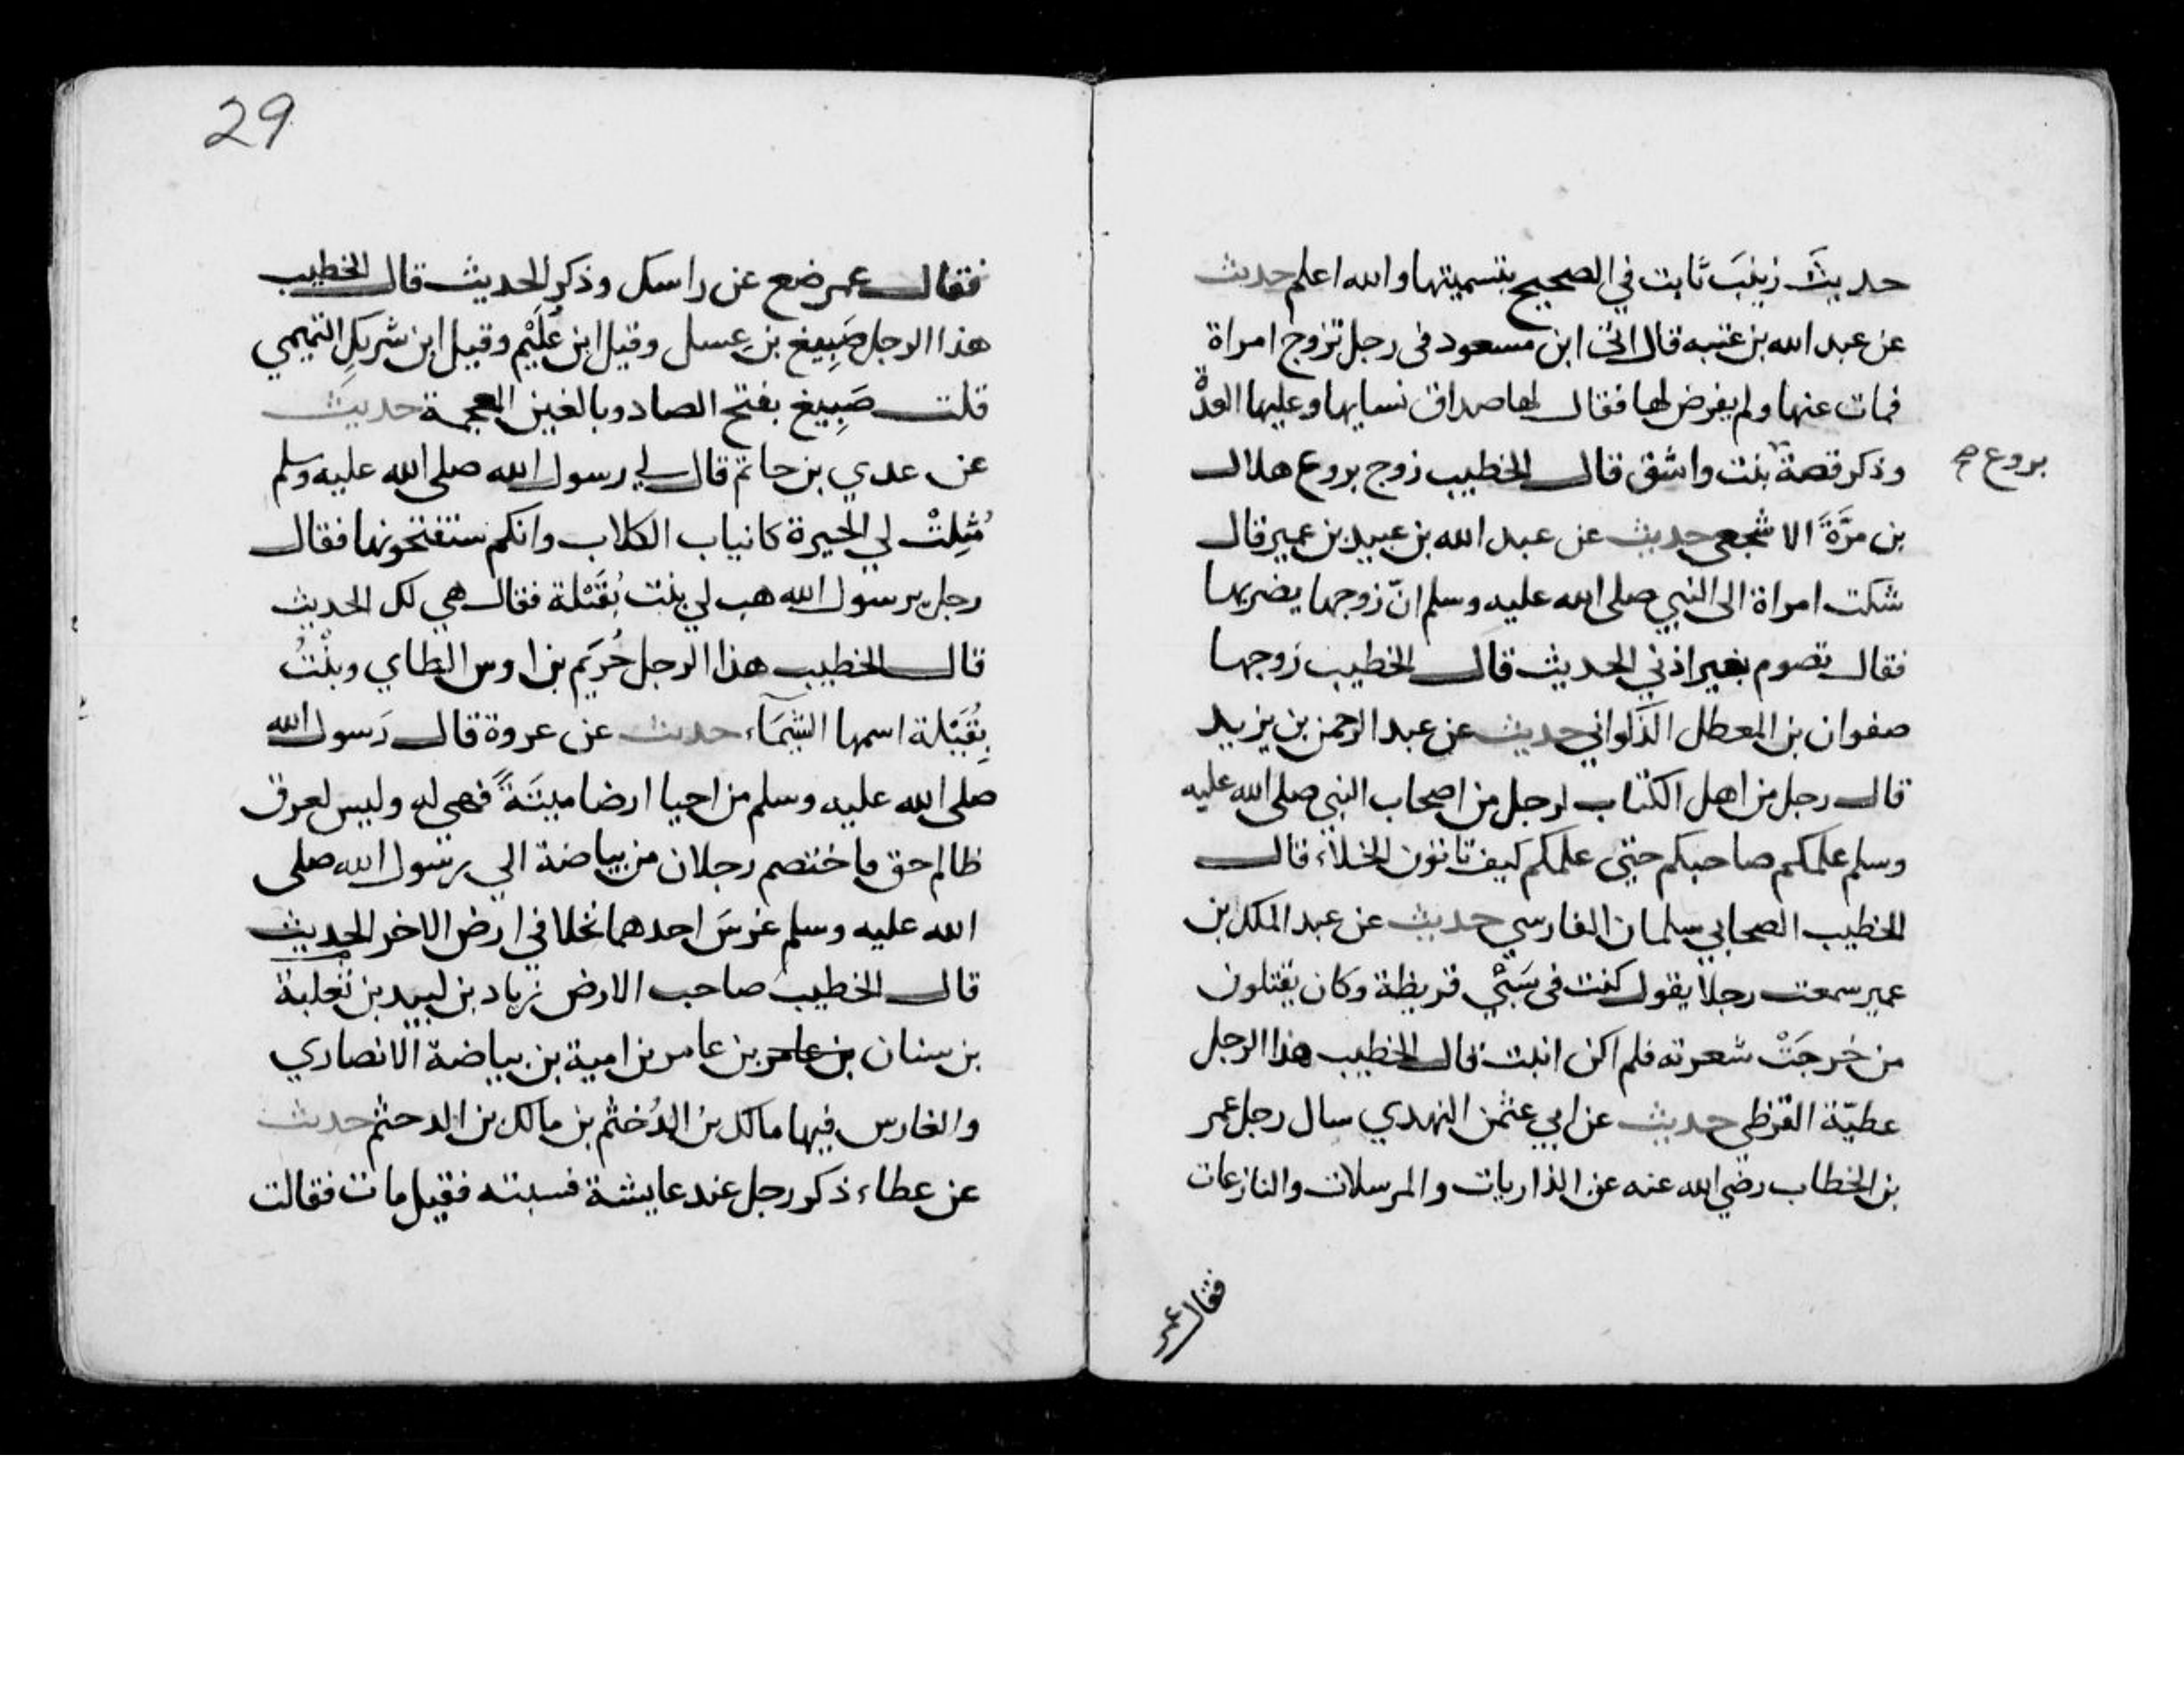 حديثَ زينبَ ثابت في الصحيح بتسميتها والله اعلم حديث
عن عبد الله بن عتبه قال اتى ابن مسعود فى رجل تزوج امراة
فمات عنها ولم يفرض لها فقال لها صداق نسايها وعليها العدة
وذكر قصة بنت واشق قال الخطيب زوج بروع هلال
بروع صح
بن مرَّةَ الاشجعي حديث عن عبد الله بن عبيد بن عمير قال
شكت امراة الى النبي صلى الله عليه وسلم انّ زوجها يضربها
فقال تصوم بغير اذني الحديث قال الخطيب زوجها
صفوان بن المعطل الذكواني حديث عن عبد الرحمن بن يزيد
قال رجل من اهل الكتاب لرجل من اصحاب النبي صلى الله عليه
وسلم علمكم صاحبكم حتى علمكم كيف تاتون الخلاء قال
الخطيب الصحابي سلمان الفارسي حديث عن عبد الملك بن
عمير سمعت رجلا يقول كنت فى سَبْيِ قريظة وكان يقتلون
من خرجَتْ شعرته فلم اكن انبت قال الخطيب هذا الرجل
عطيّة القرظي حديث عن ابي عثمن النهدي سال رجل عمر
بن الخطاب رضي الله عنه عن الذاريات والمرسلات والنازعات
فقال عمر
29
فقال عمر ضع عن راسك وذكر الحديث قال الخطيب
هذا الرجل صَبِيغ بن عسل وقيل ابن عُلَيْم وقيل ابن شريك التميمي
قلت صَبِيغ بفتح الصاد وبالغين المعجمة حديث
عن عدي بن حاتم قال لي رسول الله صلى الله عليه وسلم
مُثِلَتْ لي الحيرة كانياب الكلاب وانكم ستفتحونها فقال
رجل يرسول الله هب لي بنت بُقَيْلة فقال هي لك الحديث
قال الخطيب هذا الرجل خُرَيم بن اوس الطاي وبنْتُ
بُقَيْلة اسمها الشيمَآء حديث عن عروة قال رَسول الله
صلى الله عليه وسلم من احيا ارضا ميتَةً فهي له وليس لعرق
ظالم حق فاختصم رجلان من بياضة الي رسول الله صلى
الله عليه وسلم غرسَ احدهما نخلا في ارض الاخر الحديث
قال الخطيب صاحب الارض زياد بن لبيد بن ثعلبة
بن سنان بن عامر بن عامر بن امية بن بياضة الانصاري
والغارس فيها مالك بن الدُخثم بن مالك بن الدحثم حديث
عن عطاء ذكر رجل عند عايشة فسبته فقيل مات فقالت